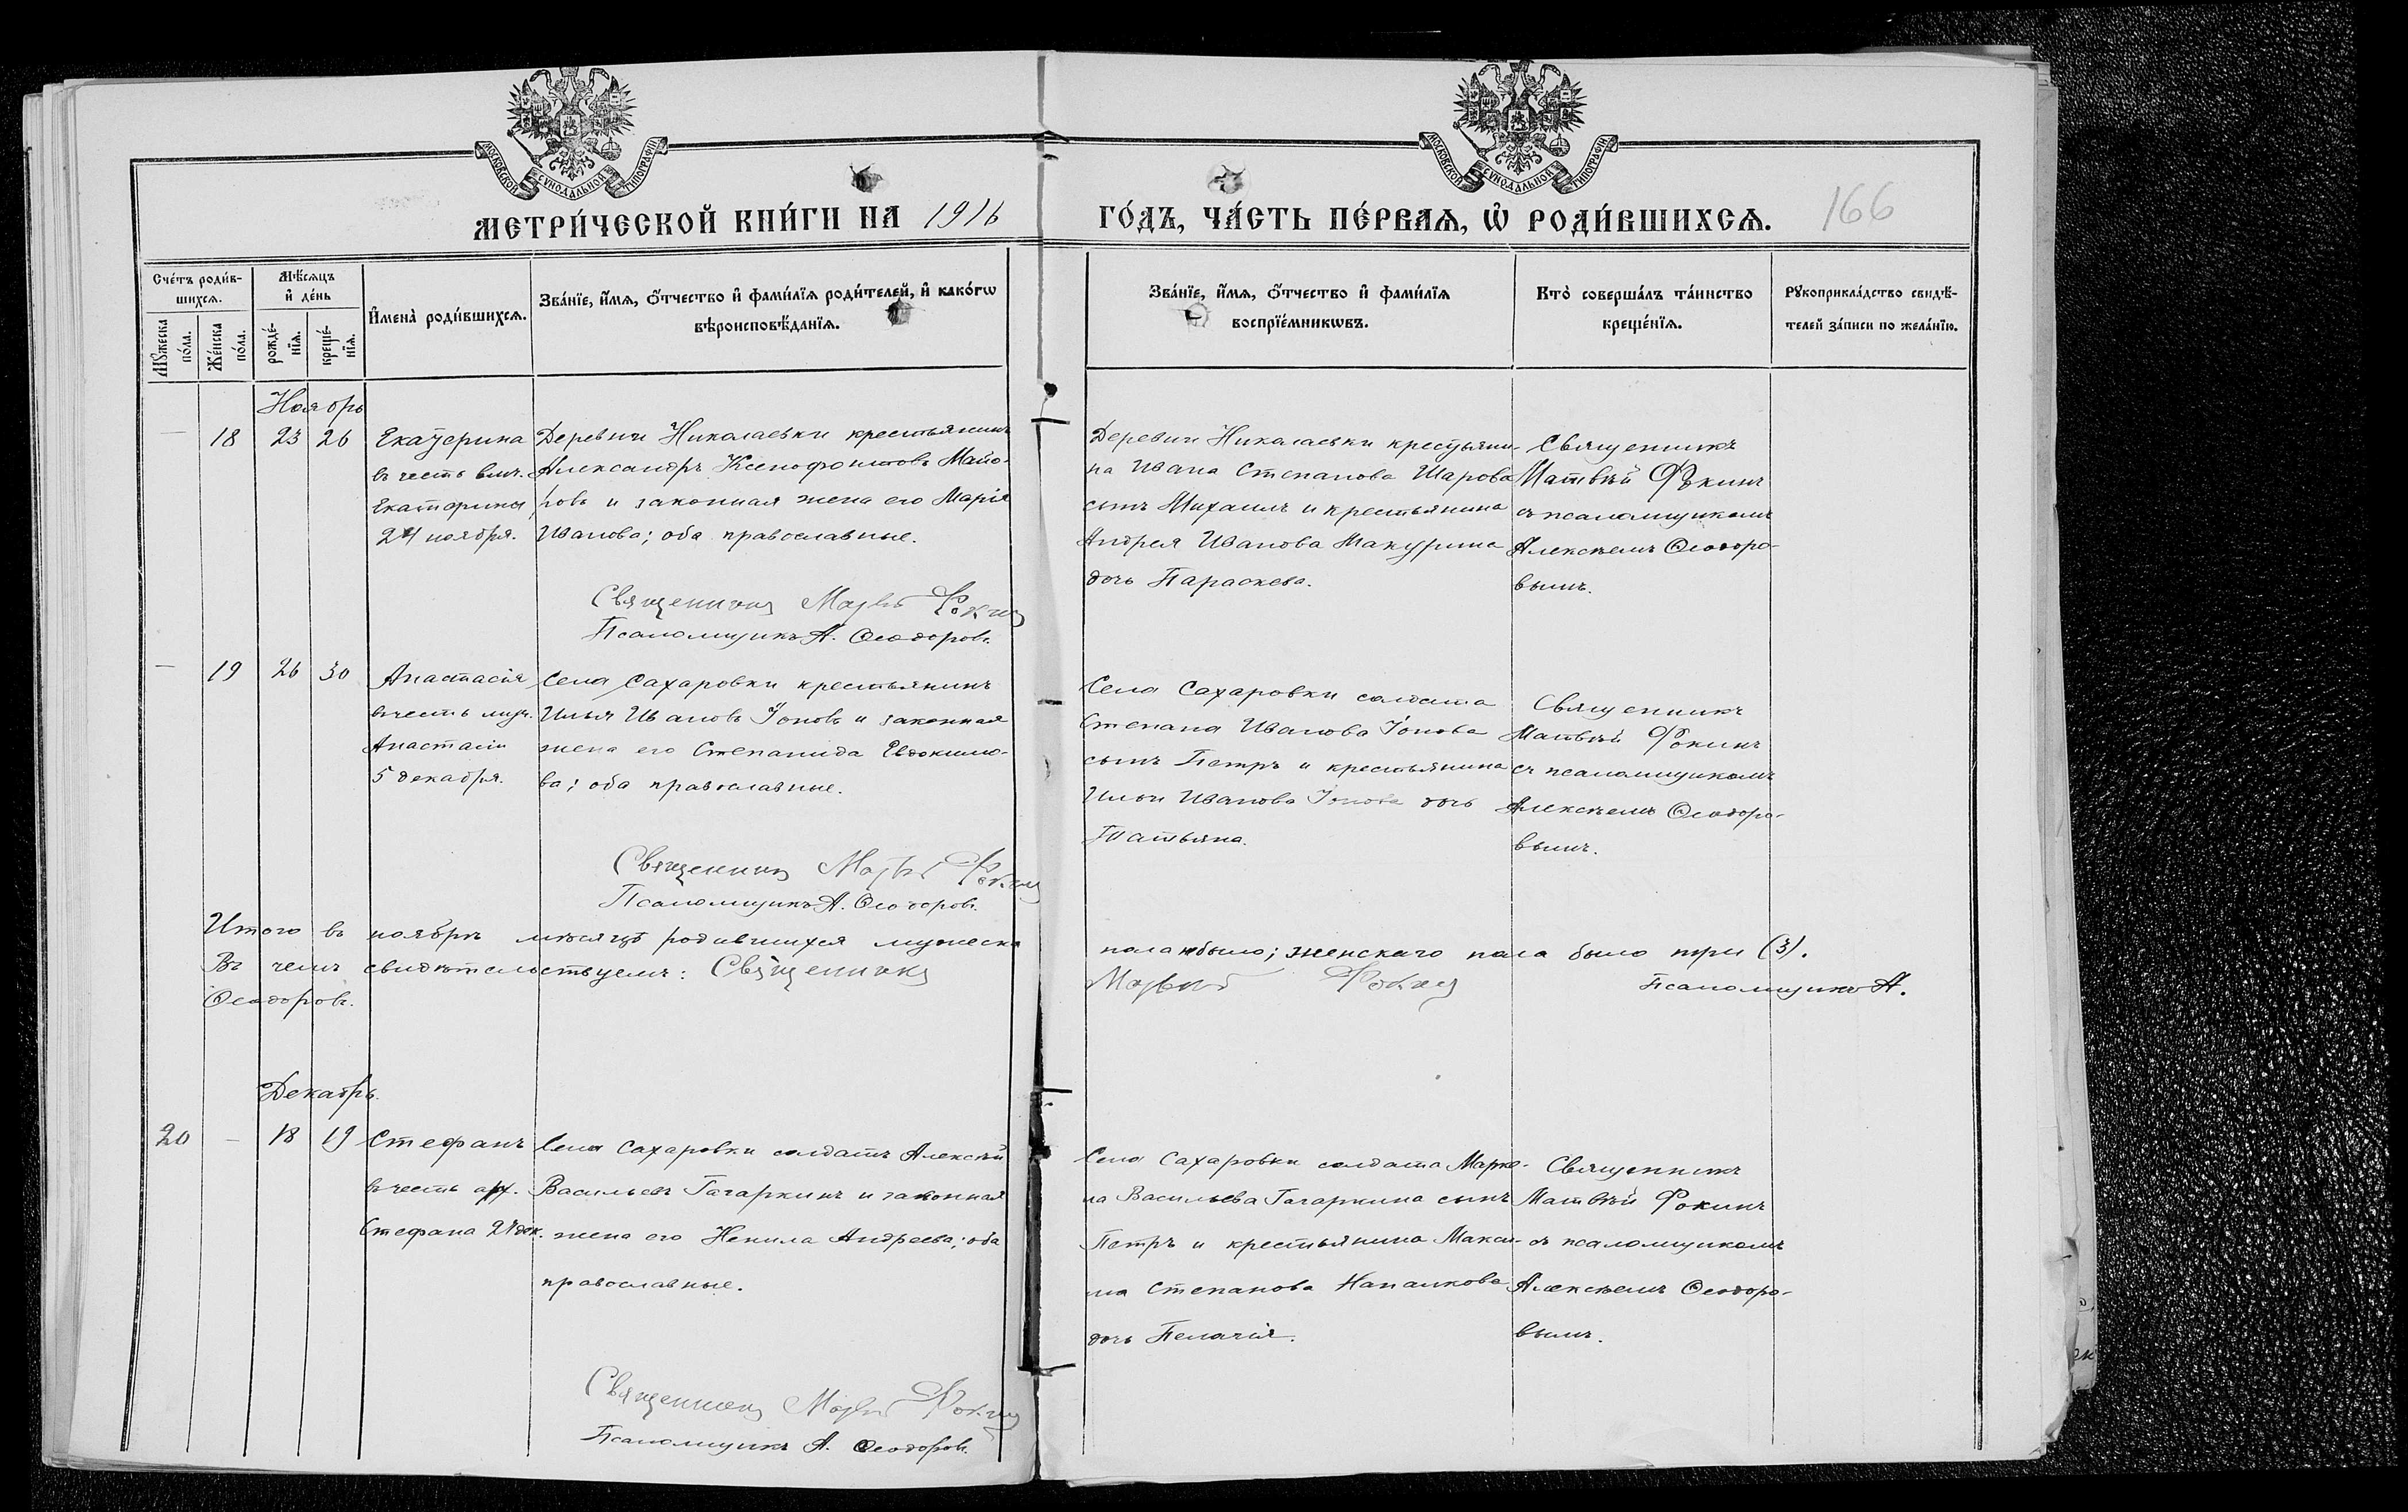 МОСКОВСКОЙ СѴНОДАЛЬНОЙ ТИПОГРАФІИ
МОСКОВСКОЙ СѴНОДАЛЬНОЙ ТИПОГРАФІИ
МЕТРИ́ЧЕСКОЙ КНИ́ГИ НА 1916 ГО́ДЪ, ЧА́СТЬ ПЕ́РВАѦ, Ѽ РОДИ́ВШИХСѦ. 166
Сче́тъ роди́в-
шихсѧ.
Мꙋ́жеска
по́ла.
Же́нска
по́ла.
Мѣ́сѧцъ
и҆ де́нь
рожде́-
нїѧ.
креще́-
нїѧ.
И҆мена̀ роди́вшихсѧ.
Зва́нїе, и҆́мѧ, ѻ҆́тчество и҆ фами́лїѧ роди́телей, и҆ како́гѡ
вѣроисповѣ́данїѧ.
Зва́нїе, и҆́мѧ, ѻ҆́тчество и҆ фами́лїѧ
воспрїе́мникѡвъ.
Кто̀ соверша́лъ та́инство
креще́нїѧ.
Рꙋкоприкла́дство свидѣ́-
телей за́писи по жела́нїю.
Ноябрь
— 18 23 26
Екатерина
въ честь влмч.
Екатерины
24 ноября.
Деревни Николаевки крестьянинъ
Александръ Ксенофонтовъ Майо-
ровъ и законная жена его Марія
Иванова; оба православные.
Священникъ Матвѣй Фокинъ
Псаломщикъ А. Ѳеодоровъ.
Деревни Николаевки крестьяни-
на Ивана Степанова Шарова
сынъ Михаилъ и крестьянина
Андрея Иванова Макурина
дочь Параскева.
Священникъ
Матвѣй Фокинъ
съ псаломщикомъ
Алексѣемъ Ѳеодоро-
вымъ.
— 19 26 30
Анастасія
въ честь муч.
Анастасіи
5 декабря.
Села Сахаровки крестьянинъ
Илья Ивановъ Іоновъ и законная
жена его Степанида Евдокимо-
ва; оба православные.
Священникъ Матвѣй Фокинъ
Псаломщикъ А. Ѳеодоровъ.
Села Сахаровки солдата
Степана Иванова Іонова
сынъ Петръ и крестьянина
Ильи Иванова Іонова дочь
Татьяна.
Священникъ
Матвѣй Фокинъ
съ псаломщикомъ
Алексѣемъ Ѳеодоро-
вымъ.
Итого въ ноябрѣ мѣсяцѣ родившихся мужеска пола не было; женскаго пола было три (3).
Въ чемъ свидѣтельствуемъ: Священникъ Матвѣй Фокинъ Псаломщикъ А.
Ѳеодоровъ.
Декабрь.
20 — 18 19
Стефанъ
въ честь арх.
Стефана 27 дек.
Села Сахаровки солдатъ Алексѣй
Васильевъ Гагаркинъ и законная
жена его Ненила Андреева; оба
православные.
Священникъ Матвѣй Фокинъ
Псаломщикъ А. Ѳеодоровъ.
Села Сахаровки солдата Марке-
ла Васильева Гагаркина сынъ
Петръ и крестьянина Макси-
ма Степанова Напалкова
дочь Пелагія.
Священникъ
Матвѣй Фокинъ
съ псаломщикомъ
Алексѣемъ Ѳеодоро-
вымъ.